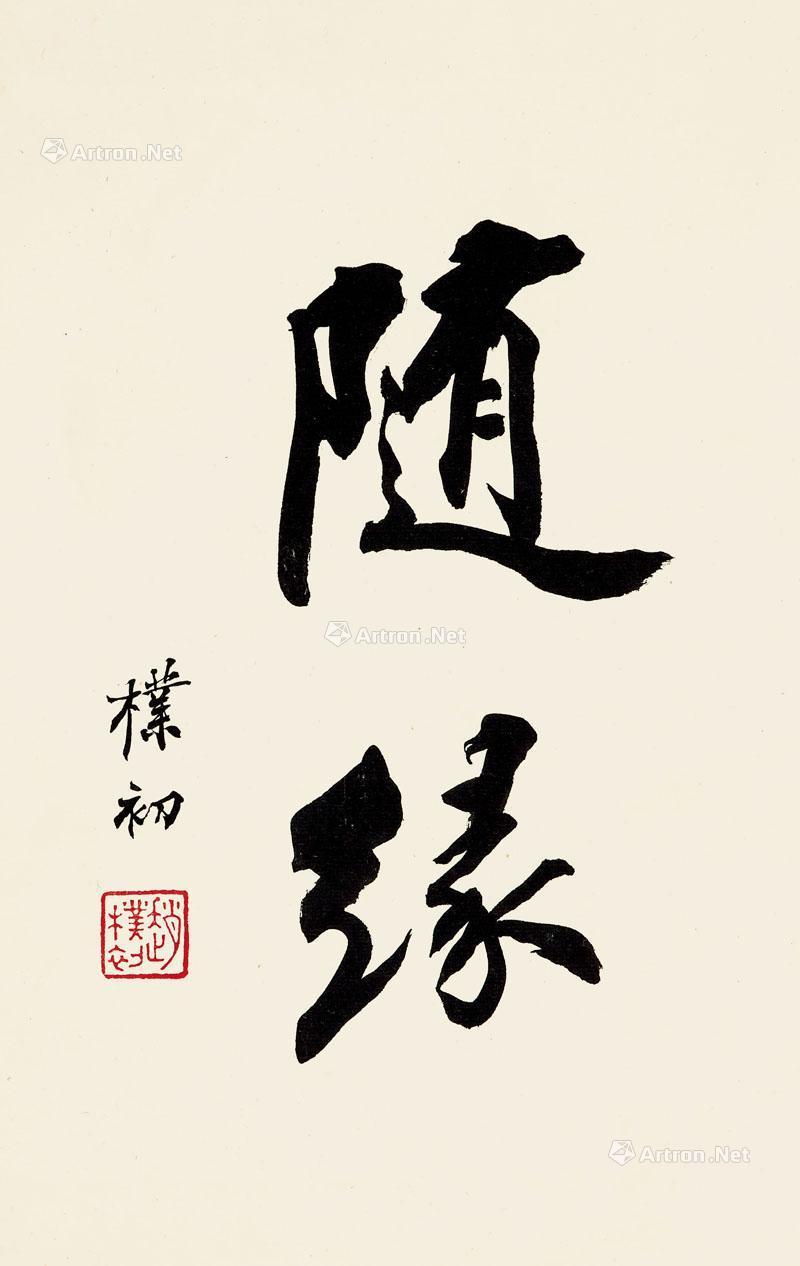 随缘
樸初
趙樸初
Artron.Net
Artron.Net
Artron.Net